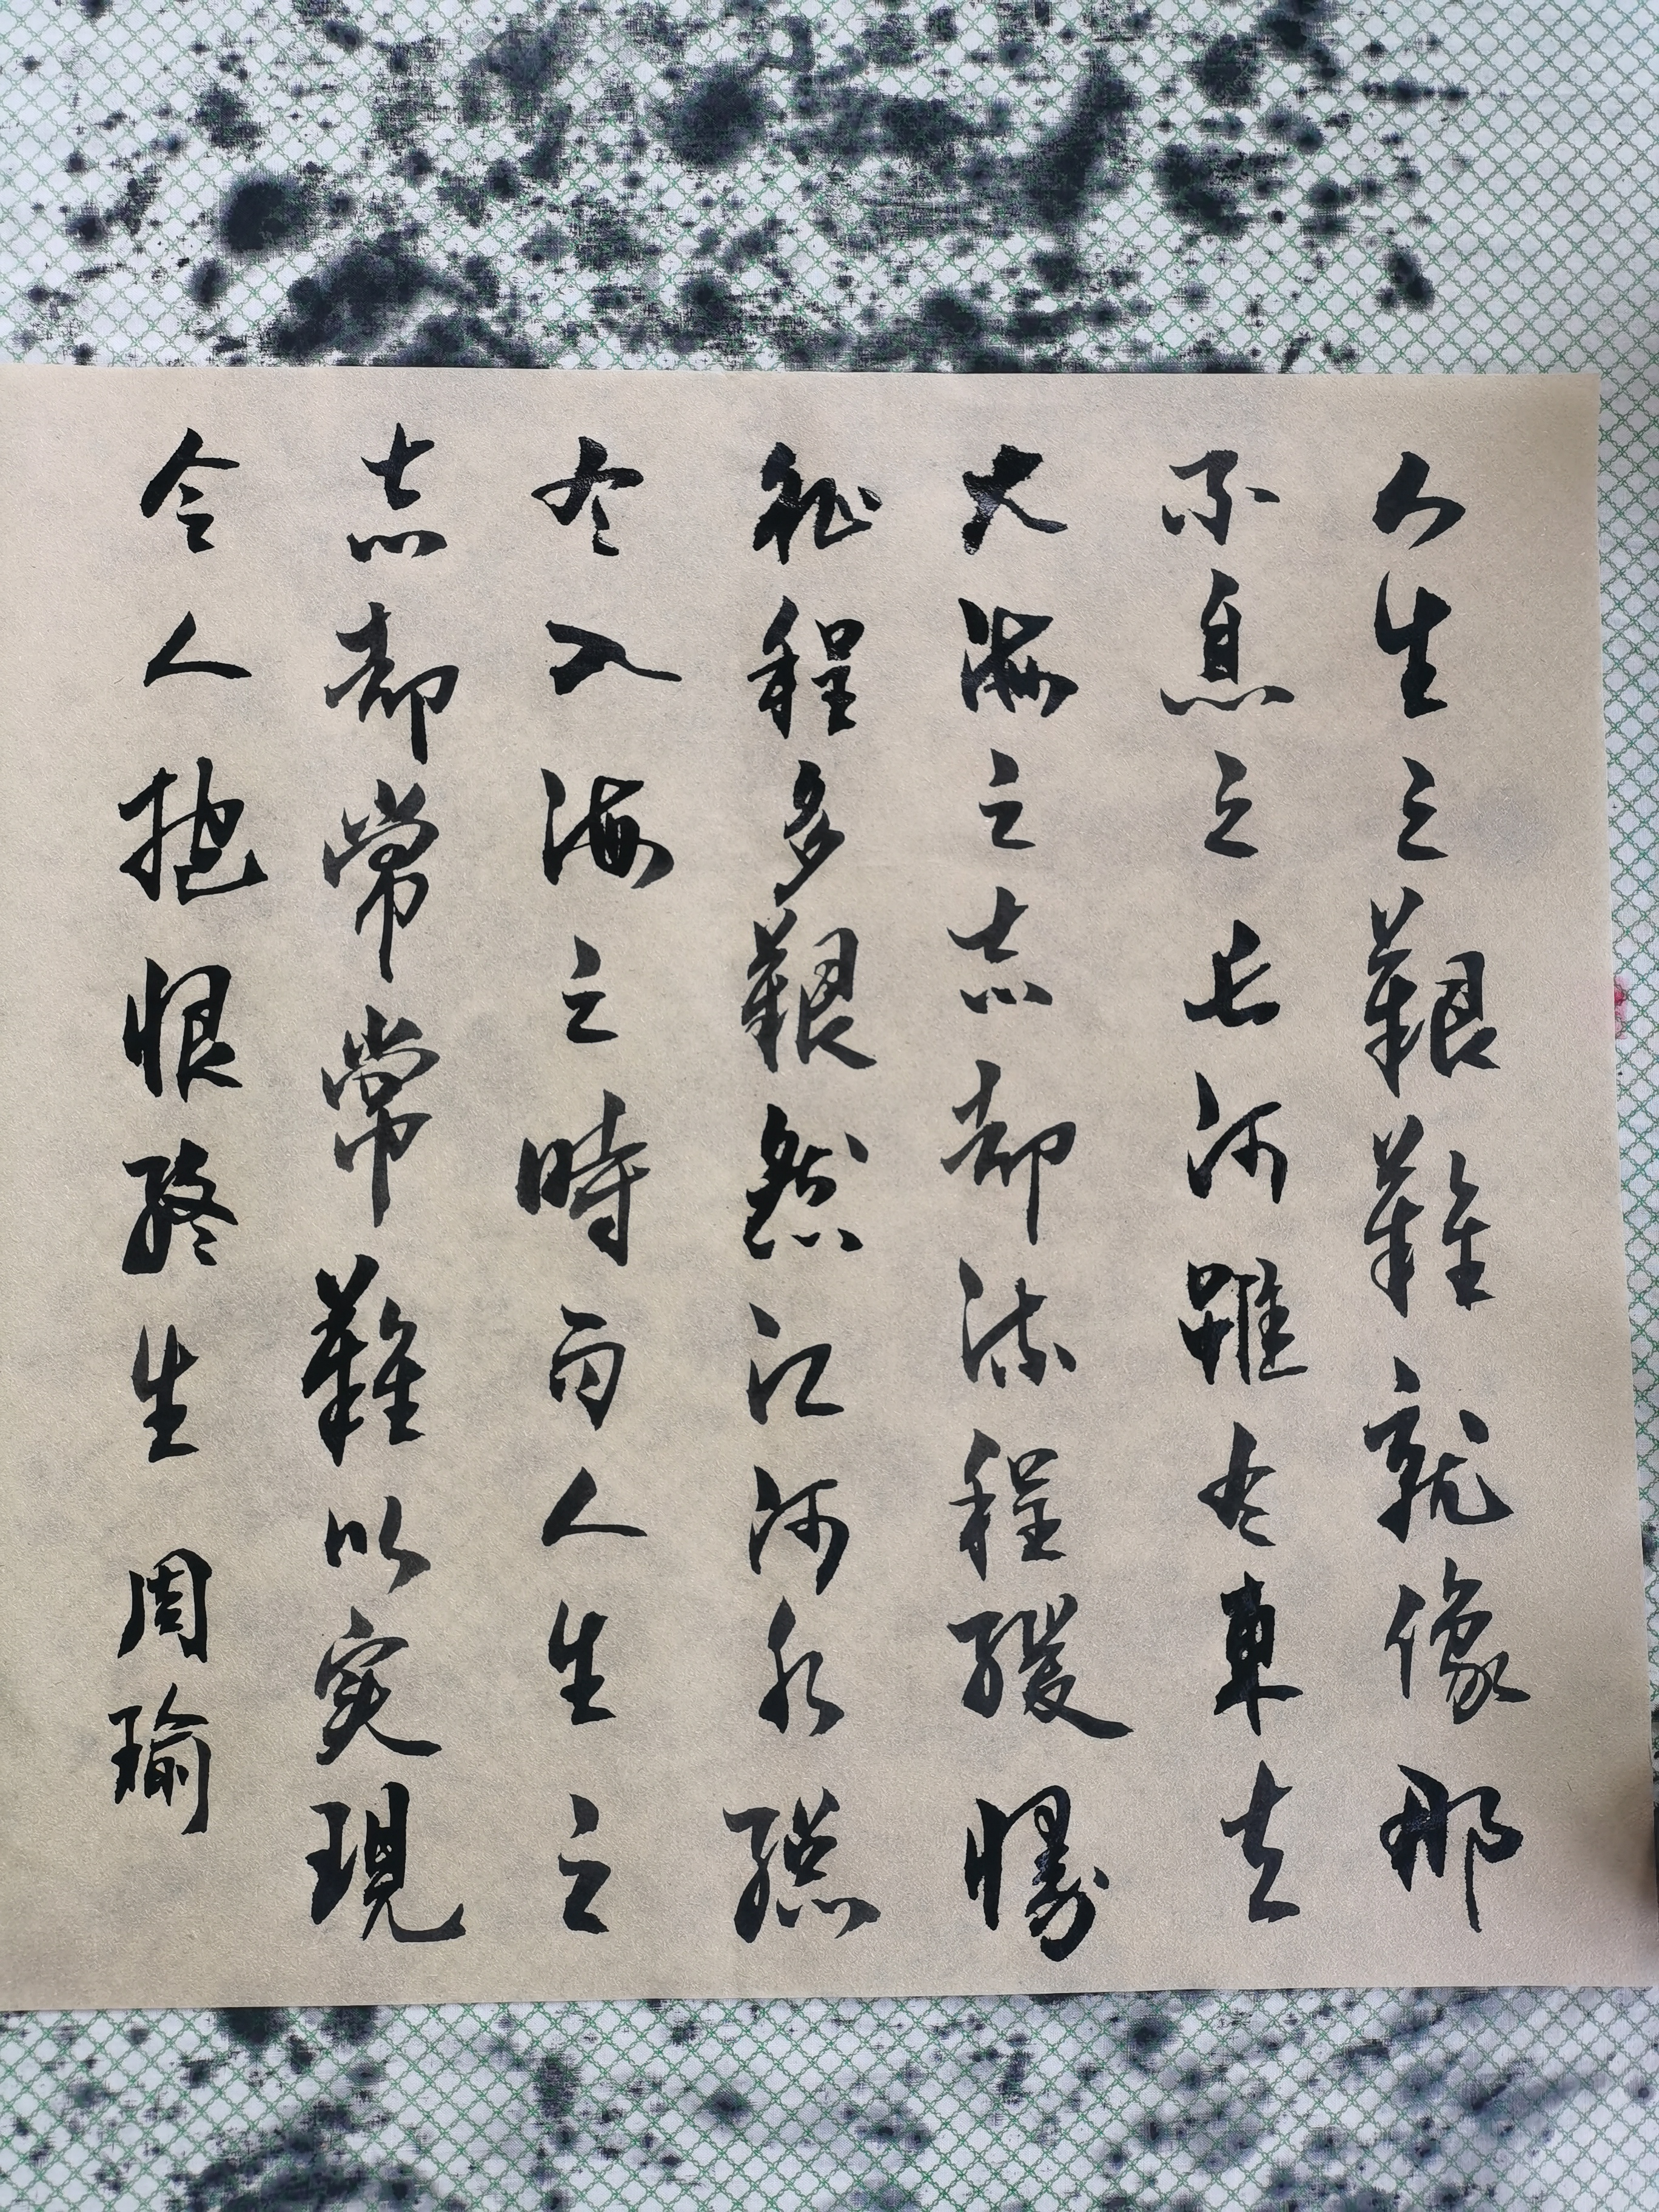 人生之艱難就像那
不息之长河雖有東去
大海之志却流程緩慢
征程多艱然江河水總
有入海之時而人生之
志却常常難以实現
令人抱恨終生 周瑜